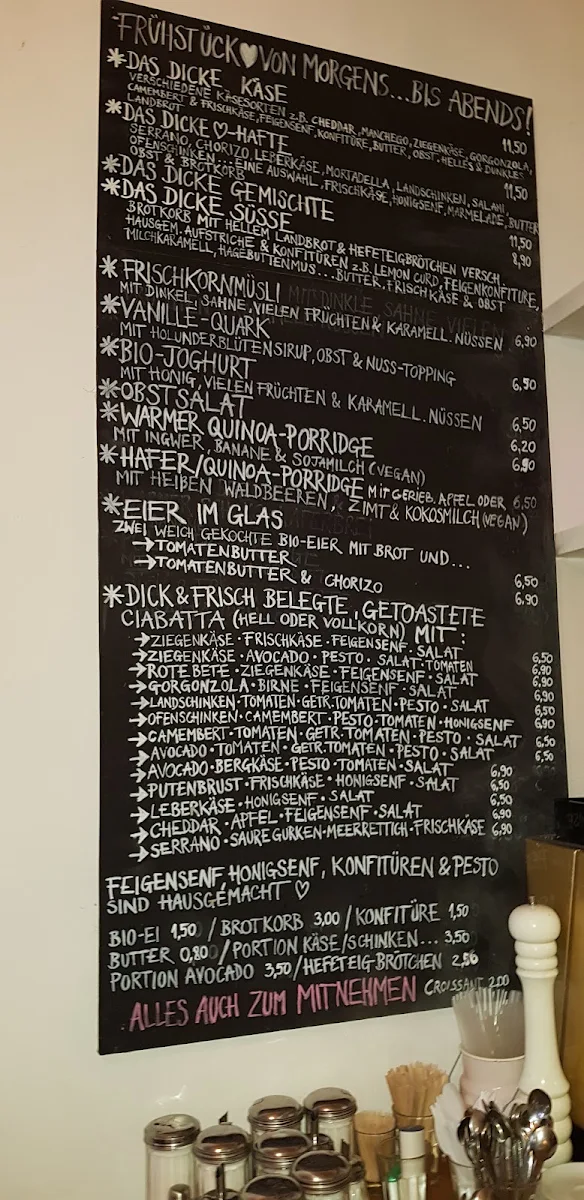 FRÜHSTÜCK♡VON MORGENS...BIS ABENDS!
*DAS DICKE KÄSE 11,50
VERSCHIEDENE KÄSESORTEN z.B. CHEDDAR, MANCHEGO, ZIEGENKÄSE, GORGONZOLA,
CAMEMBERT & FRISCHKÄSE, FEIGENSENF, KONFITÜRE, BUTTER, OBST. HELLES & DUNKLES
LANDBROT
*DAS DICKE ♡-HAFTE 11,50
SERRANO, CHORIZO, LEBERKÄSE, MORTADELLA, LANDSCHINKEN, SALAMI,
OFENSCHINKEN...EINE AUSWAHL, FRISCHKÄSE, HONIGSENF, MARMELADE, BUTTER
OBST & BROTKORB
*DAS DICKE GEMISCHTE 11,50
*DAS DICKE SÜSSE 8,90
BROTKORB MIT HELLEM LANDBROT & HEFETEIGBRÖTCHEN VERSCH.
HAUSGEM. AUFSTRICHE & KONFITÜREN z.B. LEMON CURD, FEIGENKONFITÜRE,
MILCHKARAMELL, HAGEBUTTENMUS...BUTTER, FRISCHKÄSE & OBST
*FRISCHKORNMÜSLI
MIT DINKEL, SAHNE, VIELEN FRÜCHTEN & KARAMELL. NÜSSEN 6,90
*VANILLE-QUARK
MIT HOLUNDERBLÜTENSIRUP, OBST & NUSS-TOPPING 6,50
*BIO-JOGHURT
MIT HONIG, VIELEN FRÜCHTEN & KARAMELL. NÜSSEN 6,50
*OBSTSALAT 6,20
*WARMER QUINOA-PORRIDGE 6,90
MIT INGWER, BANANE & SOJAMILCH (VEGAN)
*HAFER/QUINOA-PORRIDGE MIT GERIEB. APFEL ODER 6,50
MIT HEIßEN WALDBEEREN, ZIMT & KOKOSMILCH (VEGAN)
*EIER IM GLAS
ZWEI WEICH GEKOCHTE BIO-EIER MIT BROT UND...
→TOMATENBUTTER 6,50
→TOMATENBUTTER & CHORIZO 6,90
*DICK & FRISCH BELEGTE, GETOASTETE
CIABATTA (HELL ODER VOLLKORN) MIT:
→ZIEGENKÄSE·FRISCHKÄSE·FEIGENSENF·SALAT 6,50
→ZIEGENKÄSE·AVOCADO·PESTO·SALAT·TOMATEN 6,90
→ROTE BETE·ZIEGENKÄSE·FEIGENSENF·SALAT 6,90
→GORGONZOLA·BIRNE·FEIGENSENF·SALAT 6,90
→LANDSCHINKEN·TOMATEN·GETR.TOMATEN·PESTO·SALAT 6,50
→OFENSCHINKEN·CAMEMBERT·PESTO·TOMATEN·HONIGSENF 6,90
→CAMEMBERT·TOMATEN·GETR.TOMATEN·PESTO·SALAT 6,50
→AVOCADO·TOMATEN·GETR.TOMATEN·PESTO·SALAT 6,50
→AVOCADO·BERGKÄSE·PESTO·TOMATEN·SALAT 6,90
→PUTENBRUST·FRISCHKÄSE·HONIGSENF·SALAT 6,50
→LEBERKÄSE·HONIGSENF·SALAT 6,50
→CHEDDAR·APFEL·FEIGENSENF·SALAT 6,90
→SERRANO·SAURE GURKEN·MEERRETTICH·FRISCHKÄSE 6,90
FEIGENSENF, HONIGSENF, KONFITÜREN & PESTO
SIND HAUSGEMACHT ♡
BIO-EI 1,50 / BROTKORB 3,00 / KONFITÜRE 1,50
BUTTER 0,80 / PORTION KÄSE/SCHINKEN... 3,50
PORTION AVOCADO 3,50 / HEFETEIG-BRÖTCHEN 2,50
ALLES AUCH ZUM MITNEHMEN CROISSANT 2,00